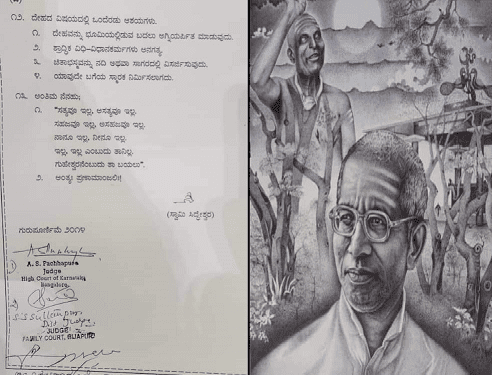 ೧೨. ದೇಹದ ವಿಷಯದಲ್ಲಿ ಒಂದೆರಡು ಆಶಯಗಳು.
೧. ದೇಹವನ್ನು ಭೂಮಿಯಲ್ಲಿಡುವ ಬದಲು ಅಗ್ನಿಯರ್ಪಿತ ಮಾಡುವುದು.
೨. ಶ್ರಾದ್ಧಿಕ ವಿಧಿ-ವಿಧಾನಕರ್ಮಗಳು ಅನಗತ್ಯ.
೩. ಚಿತಾಭಸ್ಮವನ್ನು ನದಿ ಅಥವಾ ಸಾಗರದಲ್ಲಿ ವಿಸರ್ಜಿಸುವುದು.
೪. ಯಾವುದೇ ಬಗೆಯ ಸ್ಮಾರಕ ನಿರ್ಮಿಸಲಾಗದು.
೧೩. ಅಂತಿಮ ನೆನಹು;
೧. "ಸತ್ಯವೂ ಇಲ್ಲ, ಅಸತ್ಯವೂ ಇಲ್ಲ.
ಸಹಜವೂ ಇಲ್ಲ, ಅಸಹಜವೂ ಇಲ್ಲ.
ನಾನೂ ಇಲ್ಲ, ನೀನೂ ಇಲ್ಲ.
ಇಲ್ಲ, ಇಲ್ಲ ಎಂಬುದು ತಾನಿಲ್ಲ.
ಗುಹೇಶ್ವರನೆಂಬುದು ತಾ ಬಯಲು".
೨. ಅಂತ್ಯಃ ಪ್ರಣಾಮಾಂಜಲಿಃ!
(ಸ್ವಾಮಿ ಸಿದ್ಧೇಶ್ವರ)
ಗುರುಪೂರ್ಣಿಮೆ ೨೦೧೪
A. S. Pachhapure
Judge
High Court of Karnataka
Bangalore.
JUDGE
FAMILY COURT, BIJAPUR